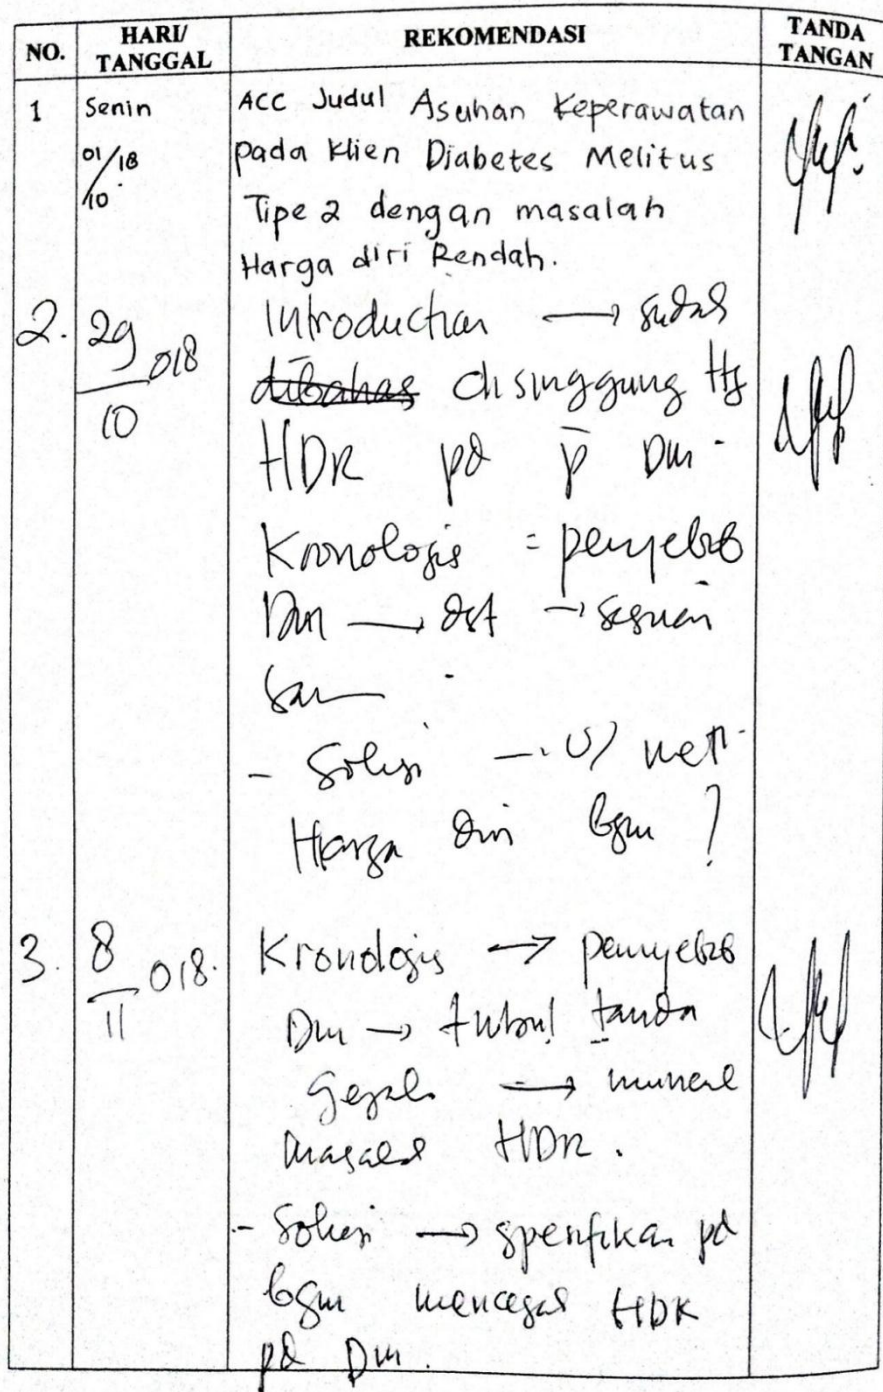 NO.
HARI/
TANGGAL
REKOMENDASI
TANDA
TANGAN
1
Senin
01/18
/10
ACC Judul Asuhan Keperawatan
pada Klien Diabetes Melitus
Tipe 2 dengan masalah
Harga diri Rendah.
2.
29 018
10
Introduction → sudah
dibahas disinggung
HDR pd p̄ Dm.
Kronologis = penyebab
Dm → dst → sesuai
- Solusi →
Harga diri bgm ?
3.
8 018.
11
Kronologis → penyebab
Dm → timbul tanda
gejala → muncul
masalah HDR.
- Solusi → spesifikan pd
bgm mencegah HDR
pd Dm.